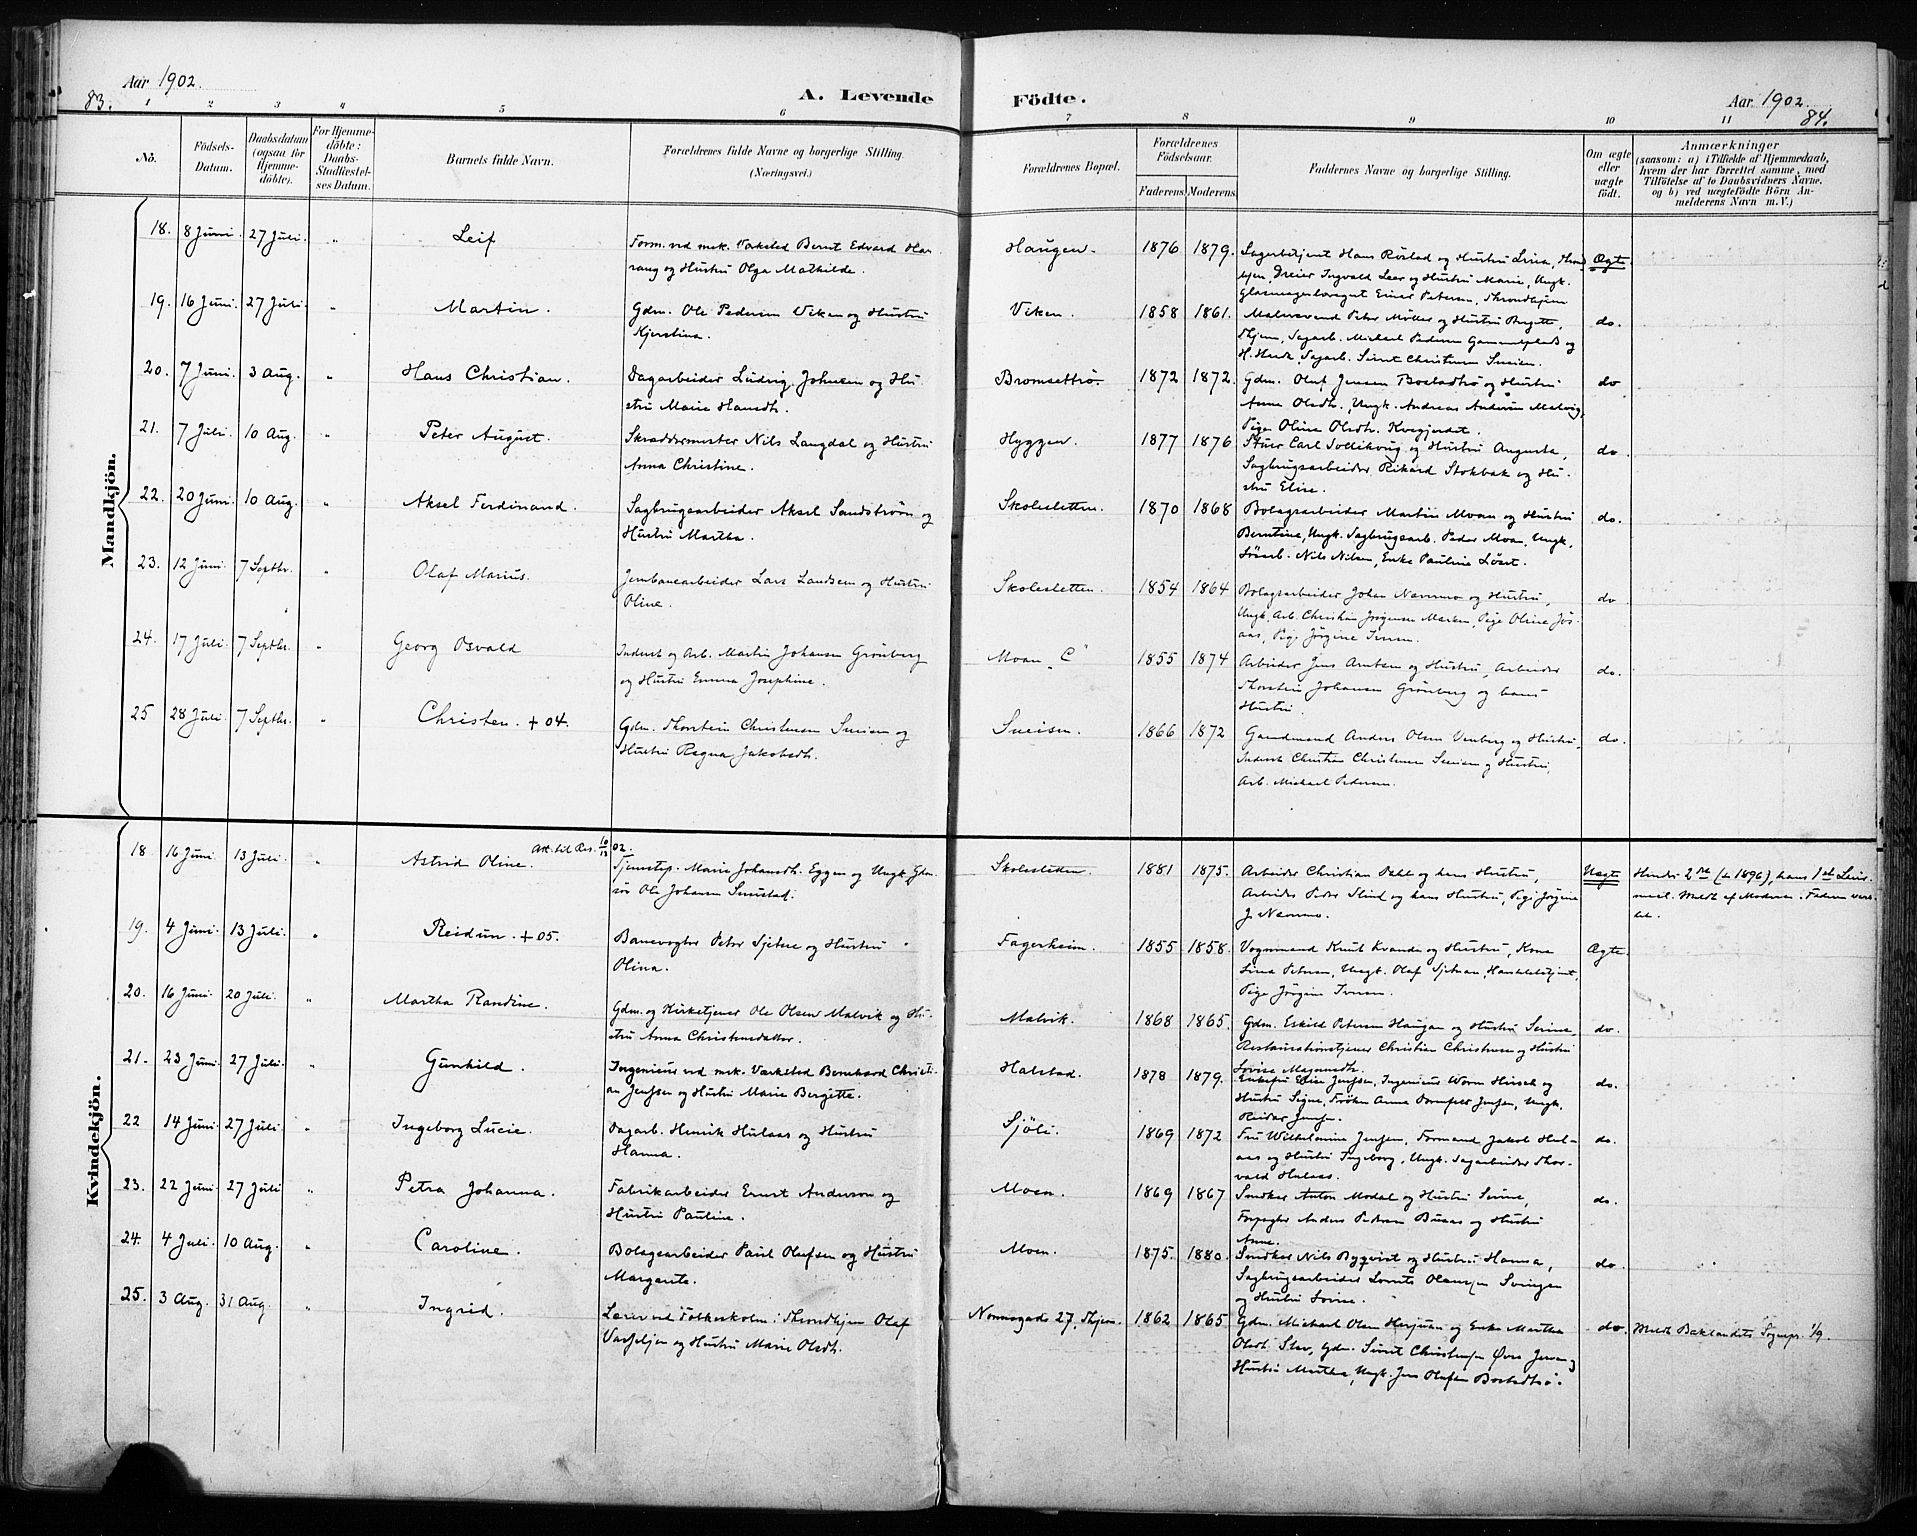 Aar 1902.
83.
A. Levende
Födte.
Aar 1902.
84.
1 2 3 4 5 6 7 8 9 10 11
No.
Födsels-
Datum.
Daabsdatum
(ogsaa for
Hjemme-
döbte).
For Hjemme-
döbte:
Daabs-
Stadfæstel-
ses Datum.
Barnets fulde Navn.
Forældrenes fulde Navne og borgerlige Stilling.
(Næringsvei.)
Forældrenes Bopæl.
Forældrenes
Födselsaar.
Faderens. Moderens.
Faddernes Navne og borgerlige Stilling.
Om ægte
eller
uægte
födt.
Anmærkninger
(saasom: a) i Tilfælde af Hjemmedaab,
hvem der har forrettet samme, med
Tilföielse af to Daabsvidners Navne.
og b) ved uægtefödte Börn An-
melderens Navn m. V.)
Mandkjön.
18. 8 Juni. 27 Juli. " Leif Form. ved mek. Værksted Bernt Edvard Ha-
rang og Hustru Olga Mathilde. Haugen. 1876 1879. Sagarbejent Hans Röstad og Hustru Lina,
Dreier Ingvald Leer og Hustru Marie, Ungk.
Einar Petersen, Throndhjem Ægte
19. 16 Juni. 27 Juli. " Martin. Gdm. Ole Pedersen Viken og Hustru
Kjerstina. Viken. 1858 1861. Malersvend Peter Möller og Hustru Bergitte,
Thjem, Sagarb. Michael Pedersen og
Sagarb. Christensen do.
20. 7 Juni. 3 Aug. " Hans Christian. Dagarbeider Ludvig Johnsen og Hu-
stru Marie Hansdt. Bromsettrö. 1872 1872. Gdm. Oluf Jensen Bostadtrö og Hustru
Anne Olsdt., Ungk. Andreas Andersen Malvig,
Pige Oline Olsdt. Kvegjerdet. do
21. 7 Juli. 10 Aug. " Peter August. Skræddermester Nils Langdal og Hustru
Anna Christine. Hyggen. 1877 1876 Carl og Hustru Augusta,
Sagbrugsarbeider Rikard Stokbak og Hu-
stru Elise. do.
22. 20 Juni. 10 Aug. " Aksel Ferdinand. Sagbrugsarbeider Aksel Sandström og
Hustru Martha. Skolesletten. 1870 1868 Bolagsarbeider Martin Moan og Hustru
Berntine, Ungk. Sagbrugsarb. Peder Moan, Ungk.
Nils Nilsen, Enke Pauline do.
23. 12 Juni. 7 Septbr. " Olaf Marius. Jernbanearbeider Lars Landsem og Hustru
Oline. Skolesletten. 1854 1864 Bolagsarbeider Johan Nævermo og Hustru,
Ungk. Arb. Christian Jörgensen Pige Oline Jös-
aas, Pige Jörgine Iversen. do
24. 17 Juli. 7 Septbr. " Georg Osvald Inderst og Arb. Martin Johansen Grönberg
og Hustru Emma Josephine. Moan "C" 1855 1874 Arbeider Jens Arntsen og Hustru, Arbeider
Thorstein Johansen Grönberg og hans
Hustru. do.
25 28 Juli. 7 Septbr. " Christen. + 04. Gdm. Thorstein Christensen Sneisen og
Hustru Ragna Jakobsdt. Sneisen. 1866 1872 Gaardmand Anders Olsen Venberg og Hustru,
Inderst Christian Christensen Sneisen og Hustru,
Arb. Michael Pedersen. do.
Kvindekjön.
18 16 Juni. 13 Juli. " Astrid Oline. Att. til Res. 10/12 02.
Tjenestep. Marie Johansdt. Eggen og Ungk. Gdm.
sön Ole Johansen Smistad. Skolesletten. 1881 1875. Arbeider Christian Dahl og hans Hustru,
Arbeider Peder Slind og hans Hustru, Pige Jörgine
J. Nævermo. Uægte Hendes 2det (1ste 1896), hans 1ste Leier-
maal. Meldt af Moderen. Faderen
19. 4 Juni. 13 Juli. " Reidun. + 05. Banevogter Peter Sjetne og Hustru
Olina. Fagerheim. 1855 1858. Vognmand Knut Kvande og Hustru, Kone
Lina Petersen, Ungk. Olaf Sjetnan, Handelsbetjent,
Pige Jörgine Iversen. Ægte.
20. 16 Juni. 20 Juli. " Martha Randine. Gdm. og Kirketjener Ole Olsen Malvik og Hu-
stru Anna Christensdatter. Malvik. 1868 1865. Gdm. Eskild Petersen Haugan og Hustru Serine,
Restaurationstjener Christian Christensen og Hustru
Lovise Magnusdt. do.
21. 23 Juni 27 Juli. " Gunhild. Ingeniør ved mek. Værksted Bernhard Christi-
an Jenssen og Hustru Marie Bergitte. Halstad. 1878 1879. Enkefru Elise Jenssen, Ingeniør Worm Hirsch og
Hustru Signe, Frøken Anna Jenssen, Ungk.
Reidar Jenssen. do.
22 14 Juni 27 Juli " Ingeborg Lucie. Dagarb. Henrik Hulaas og Hustru
Hanna. Sjöli. 1869 1872 Fru Wilhelmine Jenssen, Formand Jakob Hul-
aas og Hustru Ingeborg, Ungk. Sagarbeider Thor-
vald Hulaas. do.
23. 22 Juni 27 Juli " Petra Johanna. Fabrikarbeider Ernst Anderson og
Hustru Pauline. Moen. 1869 1867 Snedker Anton Modal og Hustru Serine,
Anders Pedersen Buaas og Hustru
Anne. do.
24. 4 Juli. 10 Aug. " Caroline. Bolagsarbeider Paul Olafsen og Hustru
Margareta. Moen. 1875. 1880. Snedker Nils Bygqvist og Hustru Hanna,
Sagbrugsarbeider Olaussen Svingen
og Hustru Lovise. do.
25. 3 Aug. 31 Aug. " Ingrid. Lærer ved Folkeskolen i Throndhjem Olaf
Vasseljen og Hustru Marie Olsdt. Nonnegade 27, Thjem. 1862 1865 Gdm. Michael Olsen Herjuan og Enke Martha
Olsdt. Stav, Gdm. Sivert Christensen Øvre Jervan og
Hustru Martha, Ungk. Jens Olafsen Bostadtrö. do. Meldt Baklandets Sognepr. 1/9.